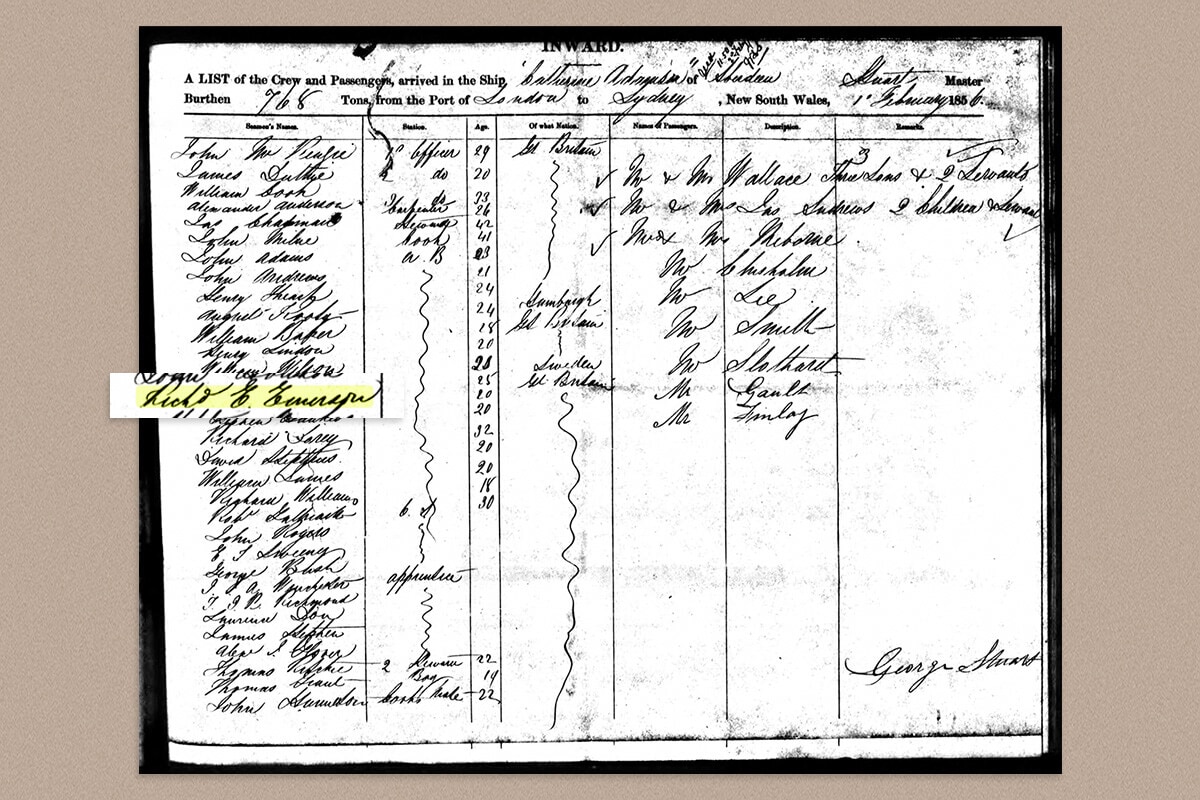 INWARD.
A LIST of the Crew and Passengers, arrived in the Ship, Catherine Adamson of London Stuart Master
Burthen 768 Tons, from the Port of London to Sydney, New South Wales, 1st February 1856.
Seamen's Names. Station. Age. Of what Nation. Names of Passengers. Description. Remarks.
John 1st Officer 29 Gt Britain
James Duthie 2 do 20 Mr & Mrs Wallace Three Sons & 2 Servants
William Cook 3 do 33
Alexander Anderson Carpenter 26 Mr & Mrs Jas Andrews 2 Children & Servant
Jas Chapman Steward 42
John Milne Cook 41 Mr & Mrs
John Adams A. B 23
John Andrews 21 Mr Chisholm
Henry 24 Hamburgh Mr Lee
August 24 Gt Britain
William Baker 28 Mr Smith
Henry Lindon 20
William Wilson 28 Sweden Mr Stothard
Louis 25 Gt Britain
Richd E Emerson 20 Mr Gault
Stephen 20 Mr Finlay
Richard 32
David Stephens 20
William James 20
Richard Williams 18
Robt Galbraith 30
John Rogers
E J Sweeney
George Bush apprentice
J. P. Richmond
Laurence
James Stephen
Alexr J.
Thomas Ritchie 2 Steward 22 George Stuart
Thomas Grant Boy 19
John Cooks Mate 22